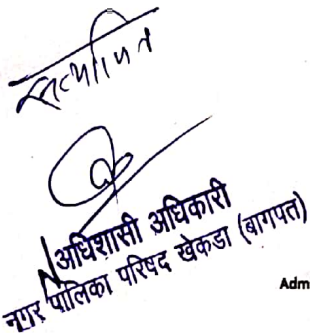 सत्यापित
अधिशासी अधिकारी
नगर पालिका परिषद खेकडा (बागपत)
Adm